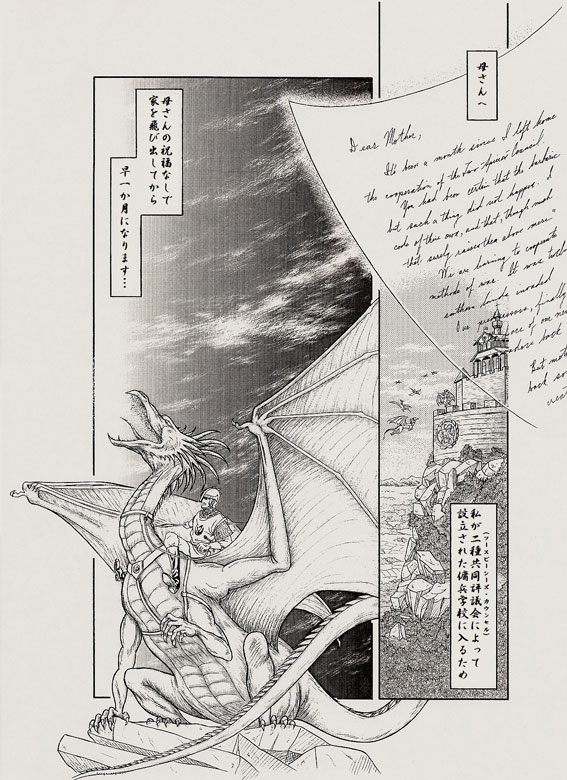 母さんへ
Dear Mother,
It's been a month since I left home
the cooperation of the Two Species Council.
You had been certain that the barbaric
but such a thing did not happen. I
code of their own, and that, though much
that surely raises them above mere
We are learning to cooperate
methods of war. It was
lands invaded
Our predecessors, finally
of our
back
But
back
私が二種共同評議会によって
(ツースピーシーズ・カウンセル)
設立された傭兵学校に入るため
母さんの祝福なしで
家を飛び出してから
早一か月になります…